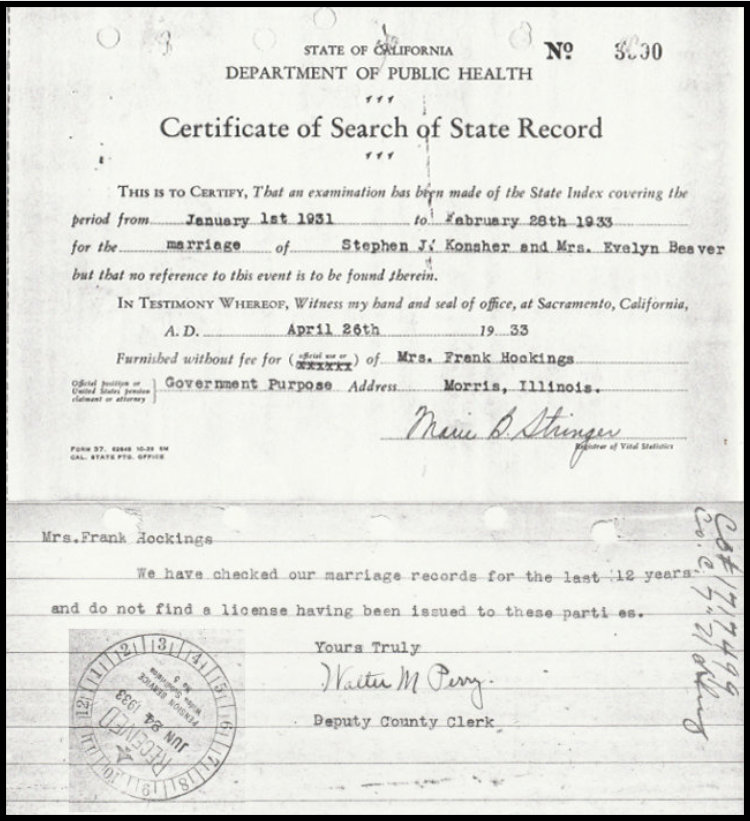 STATE OF CALIFORNIA
Nº 3890
DEPARTMENT OF PUBLIC HEALTH
Certificate of Search of State Record
THIS IS TO CERTIFY, That an examination has been made of the State Index covering the
period from January 1st 1931 to February 28th 1933
for the marriage of Stephen J. Konsher and Mrs. Evelyn Beaver
but that no reference to this event is to be found therein.
IN TESTIMONY WHEREOF, Witness my hand and seal of office, at Sacramento, California,
A. D. April 26th 19 33
Furnished without fee for (official use or xxxxxx) of Mrs. Frank Hockings
Official position or United States pension claimant or attorney } Government Purpose Address Morris, Illinois.
Marie B. Stringer
Registrar of Vital Statistics
FORM 57. 10-29 5M
CAL. STATE PTG. OFFICE
Mrs.Frank Hockings
We have checked our marriage records for the last 12 years
and do not find a license having been issued to these parti es.
Yours Truly
Walter M Perry.
Deputy County Clerk
RECEIVED
JUN 24 1933
PENSION SERVICE
1 2 3 4 5 6 7 8 9 10 11 12